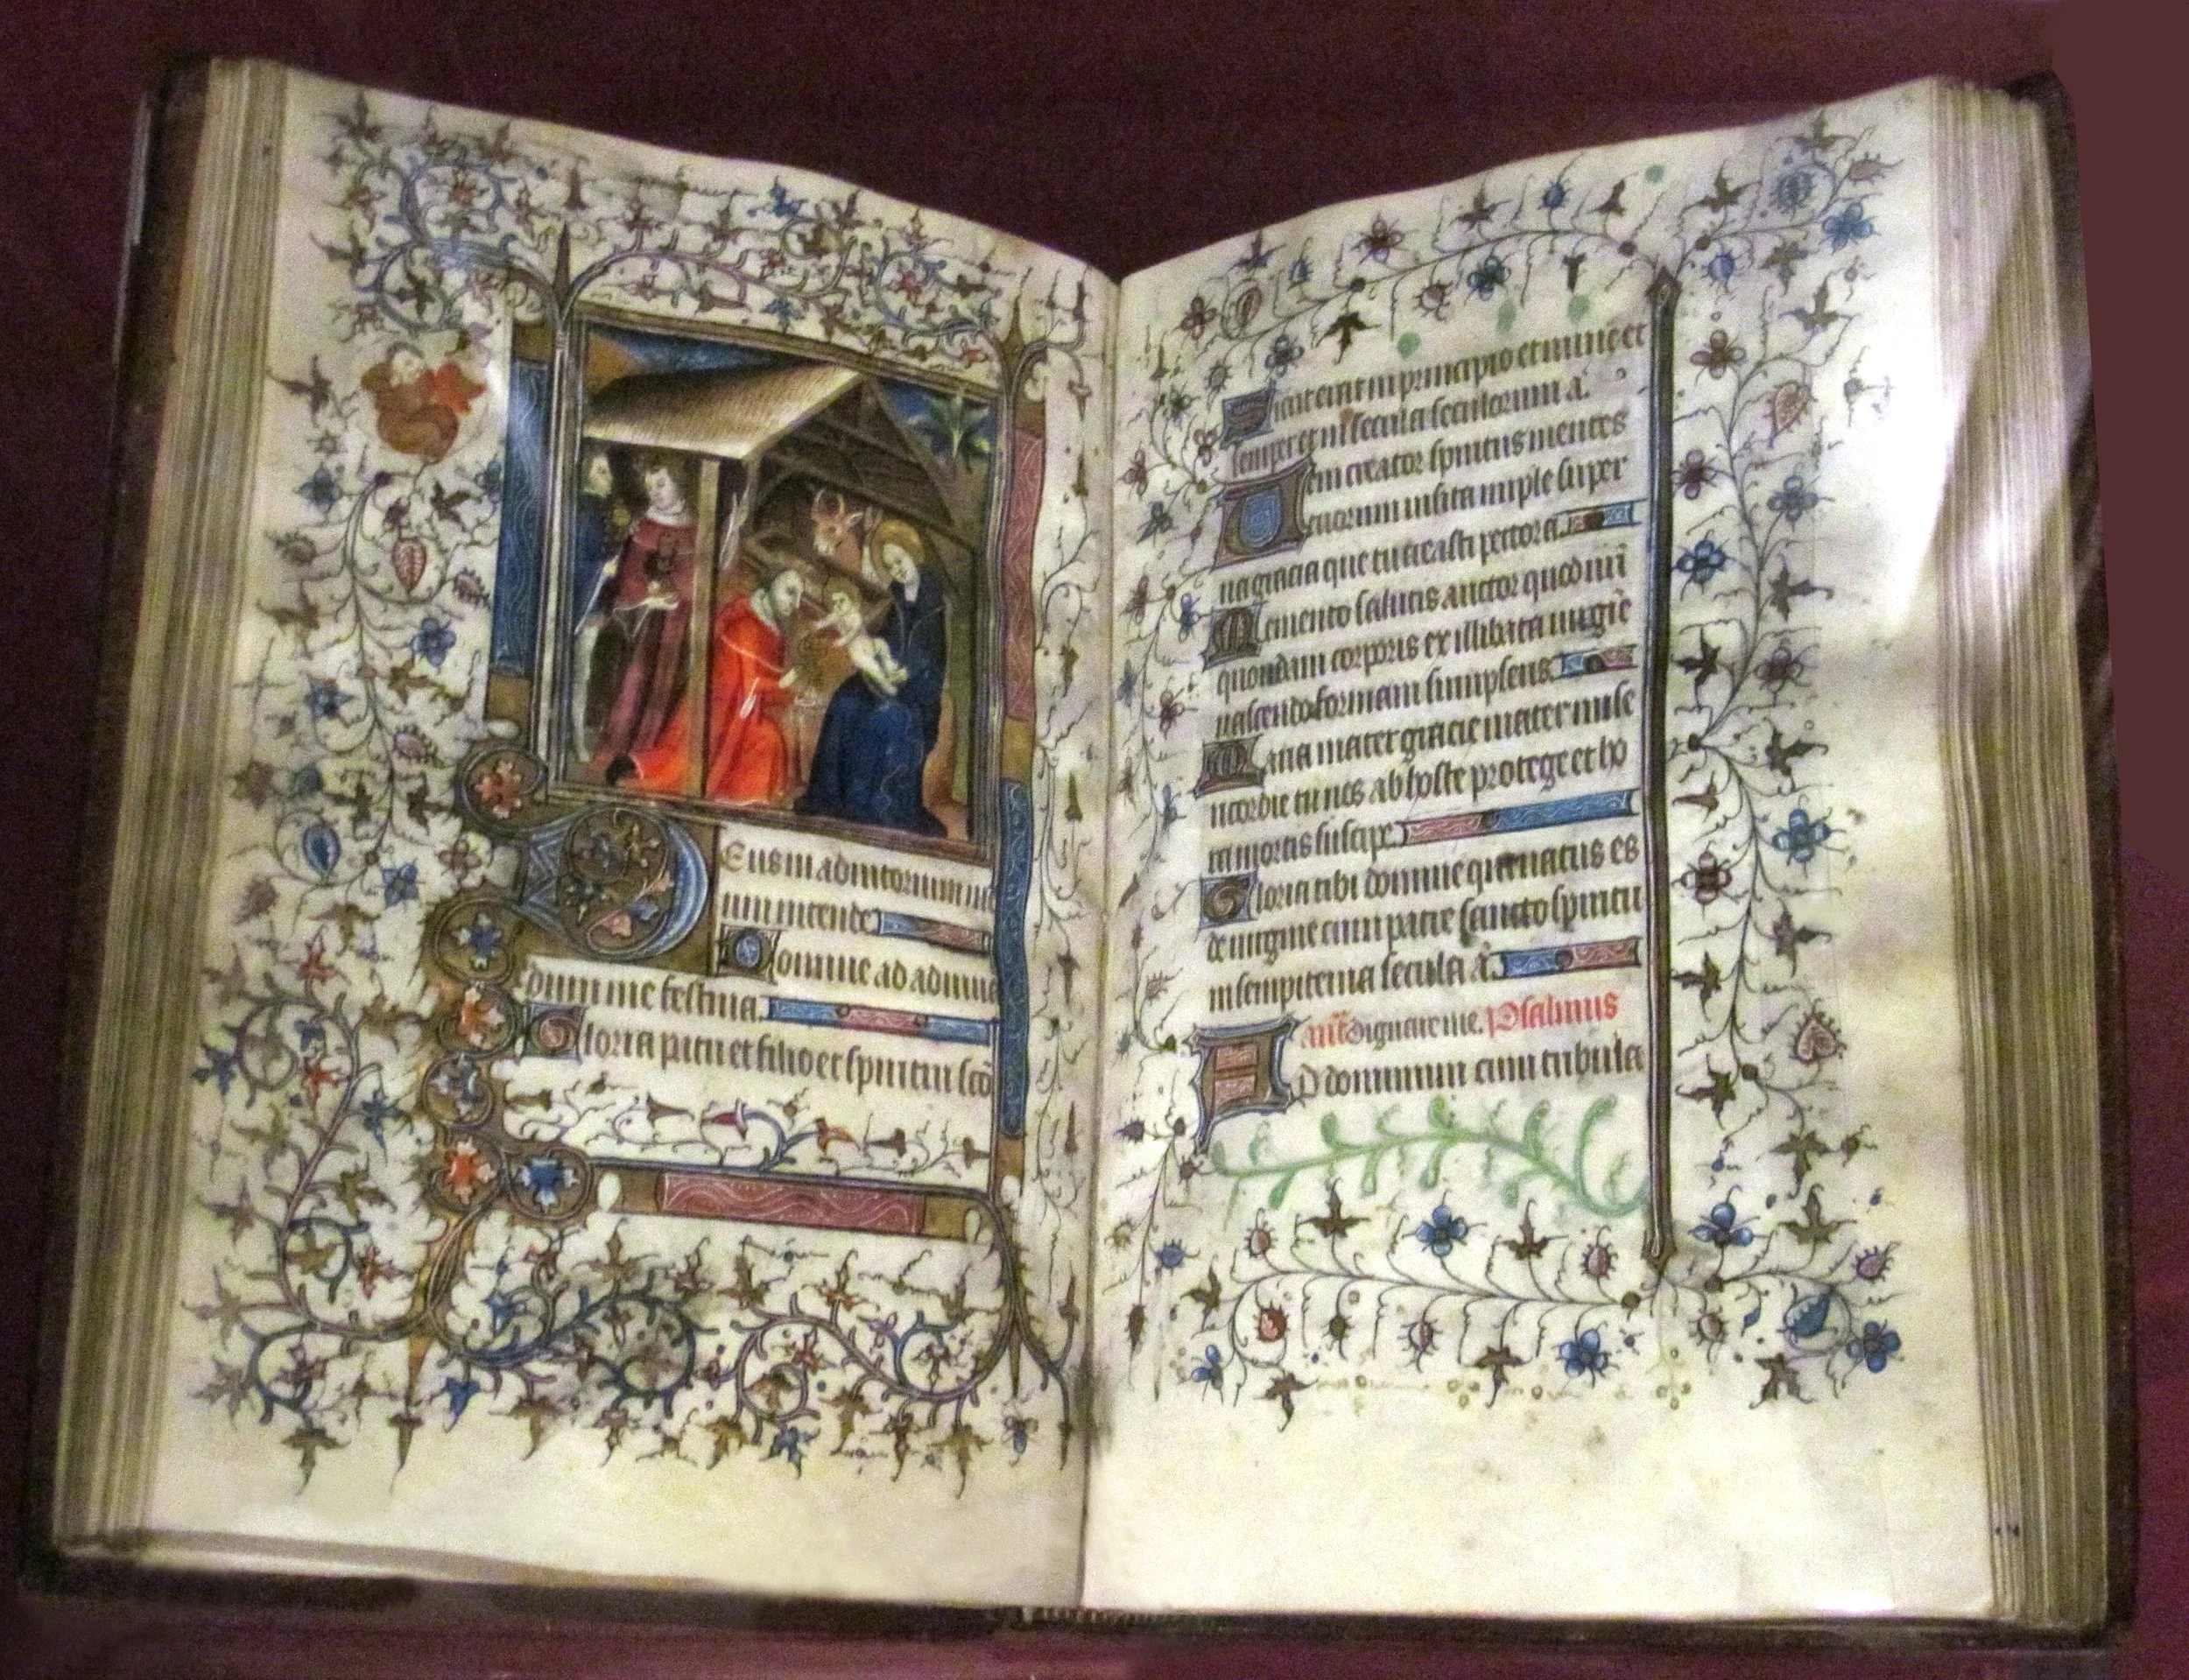 Deus in adiutorium me
um intende
Domine ad adiuua
dum me festina.
Gloria patri et filio et spiritui sc̄o
Sicut erat in principio et nunc et
semper et in secula seculorum a.
Ueni creator spiritus mentes
tuorum uisita imple super
na gracia que tu creasti pectora.
Memento salutis auctor quod nr̄i
quondam corporis ex illibata uirgīe
nascendo formam sumpseris.
Maria mater gracie mater mise
ricordie tu nos ab hoste protege et ho
ra mortis suscipe.
Gloria tibi domine qui natus es
de uirgine cum patre sancto spiritu
in sempiterna secula ā.
an̄t dignare me. Psalmus
AD dominum cum tribula